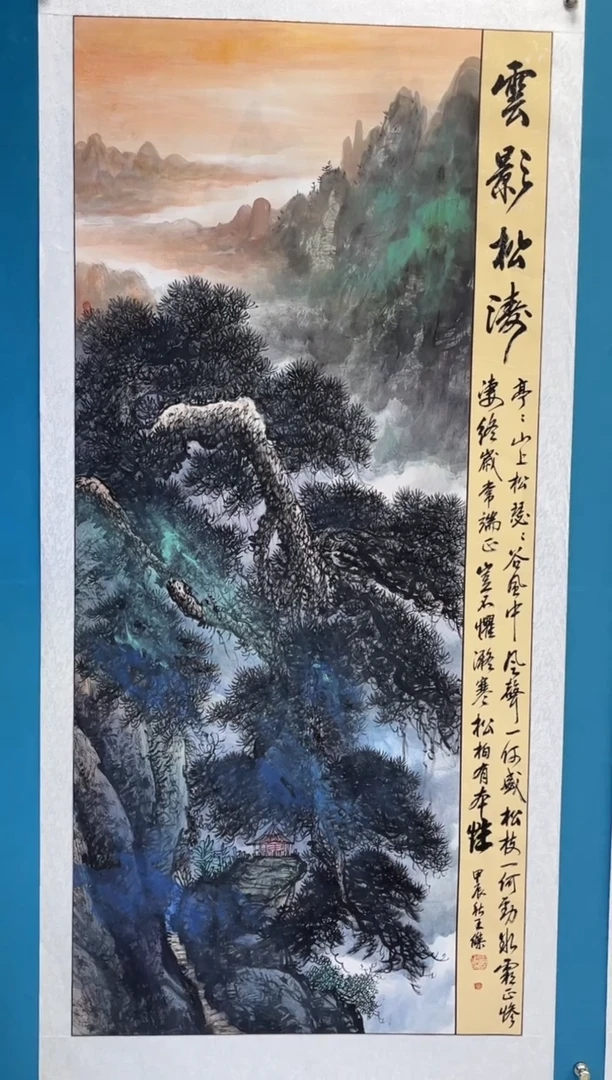 雲影松濤
亭〻山上松瑟〻谷風中風聲一何盛松枝一何勁冰霜正慘
凄終歲常端正豈不懼凝寒松柏有本性
甲辰秋王傑